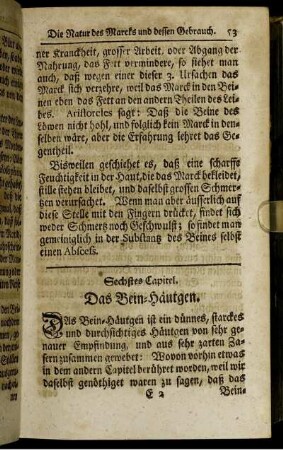 Die Natur des Marcks und dessen Gebrauch. 53
ner Kranckheit, grosser Arbeit, oder Abgang der
Nahrung, das Fett vermindere, so siehet man
auch, daß wegen einer dieser 3. Ursachen das
Marck sich verzehre, weil das Marck in den Bei-
nen eben das Fett an den andern Theilen des Lei-
bes. Aristoteles sagt: Daß die Beine des
Löwen nicht hohl, und folglich kein Marck in den-
selben wäre, aber die Erfahrung lehret das Ge-
gentheil.
Bisweilen geschiehet es, daß eine scharffe
Feuchtigkeit in der Haut, die das Marck bekleidet,
stille stehen bleibet, und daselbst grossen Schmer-
tzen verursachet. Wenn man aber äusserlich auf
diese Stelle mit den Fingern drücket, findet sich
weder Schmertz noch Geschwulst; so findet man
gemeiniglich in der Substantz des Beines selbst
einen Abscess.
Sechstes Capitel.
Das Bein-Häutgen.
DAs Bein-Häutgen ist ein dünnes, starckes
und durchsichtiges Häutgen von sehr ge-
nauer Empfindung, und aus sehr zarten Za-
sern zusammen gewebet: Wovon vorhin etwas
in dem andern Capitel berühret worden, weil wir
daselbst genöthiget waren zu sagen, daß das
E 2 Bein-